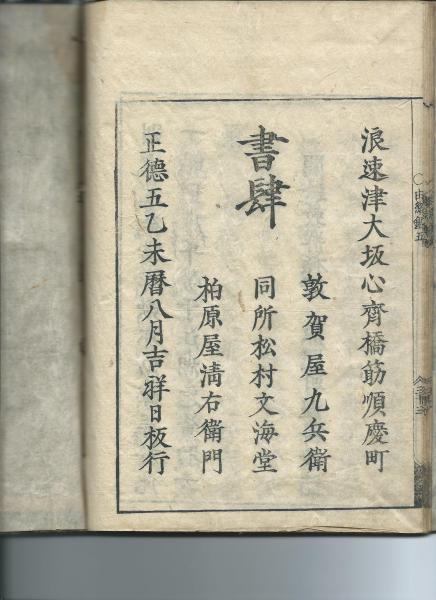 浪速津大坂心齊橋筋順慶町
敦賀屋九兵衛
同所松村文海堂
書肆
柏原屋清右衛門
正德五乙未曆八月吉祥日板行